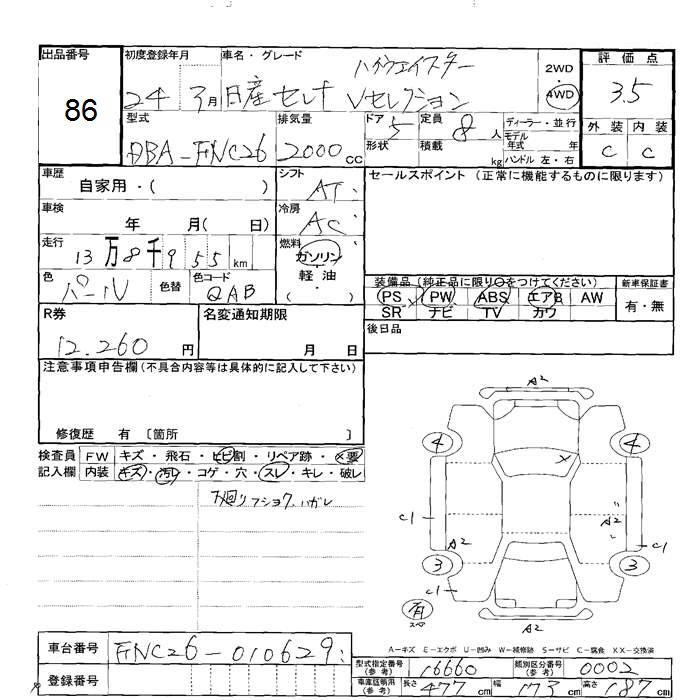 出品番号 初度登録年月 車名・グレード ハイウェイスター 2WD 評価点
86 24年 3月 日産セレナ Vセレクション 4WD 3.5
型式 排気量 ドア 5 定員 8人 ディーラー・並行 外装 内装
DBA-FNC26 2000cc 形状 積載 kg モデル年式 年 ハンドル 左・右 C C
車歴 自家用・( ) シフト AT セールスポイント (正常に機能するものに限ります)
車検 年 月( 日) 冷房 AC
走行 13万8千955km 燃料 ガソリン
色 パール 色替 色コード QAB 軽油 ( )
装備品 (純正品に限り○をつけてください) 新車保証書
PS PW ABS エアB AW 有・無
SR ナビ TV カワ
R券 名変通知期限 後日品
12.260円 月 日
注意事項申告欄 (不具合内容等は具体的に記入して下さい)
修復歴 有 〔箇所 〕
検査員 FW キズ・飛石・ヒビ割・リペア跡・×要
記入欄 内装 キズ・汚レ・コゲ・穴・スレ・キレ・破レ
下廻リフショク、ハガレ
A2
4 4
×
C1 A2 A2 C1
3 3
C1 C1
有
スペ
A2
A-キズ E-エクボ U-凹み W-補修跡 S-サビ C-腐食 XX-交換済
車台番号 FNC26-010629
登録番号
型式指定番号 (参考) 16660 類別区分番号 (参考) 0002
車庫証明用 (参考) 長さ 477cm 幅 173cm 高さ 187cm